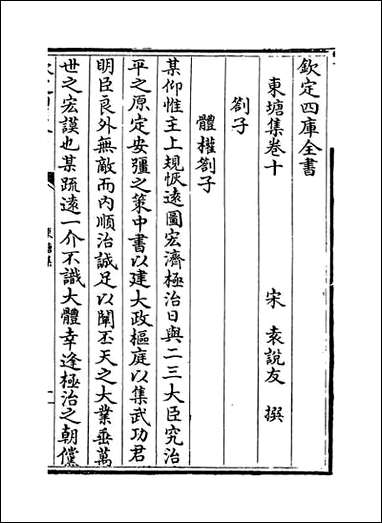 欽定四庫全書
東塘集卷十
宋 袁說友 撰
劄子
體權劄子
某仰惟主上規恢遠圖宏濟極治日與二三大臣究治
平之原定安彊之策中書以建大政樞庭以集武功君
明臣良外無敵而内順治誠足以闡丕天之大業垂萬
世之宏謨也某疏遠一介不識大體幸逢極治之朝儻
東塘集